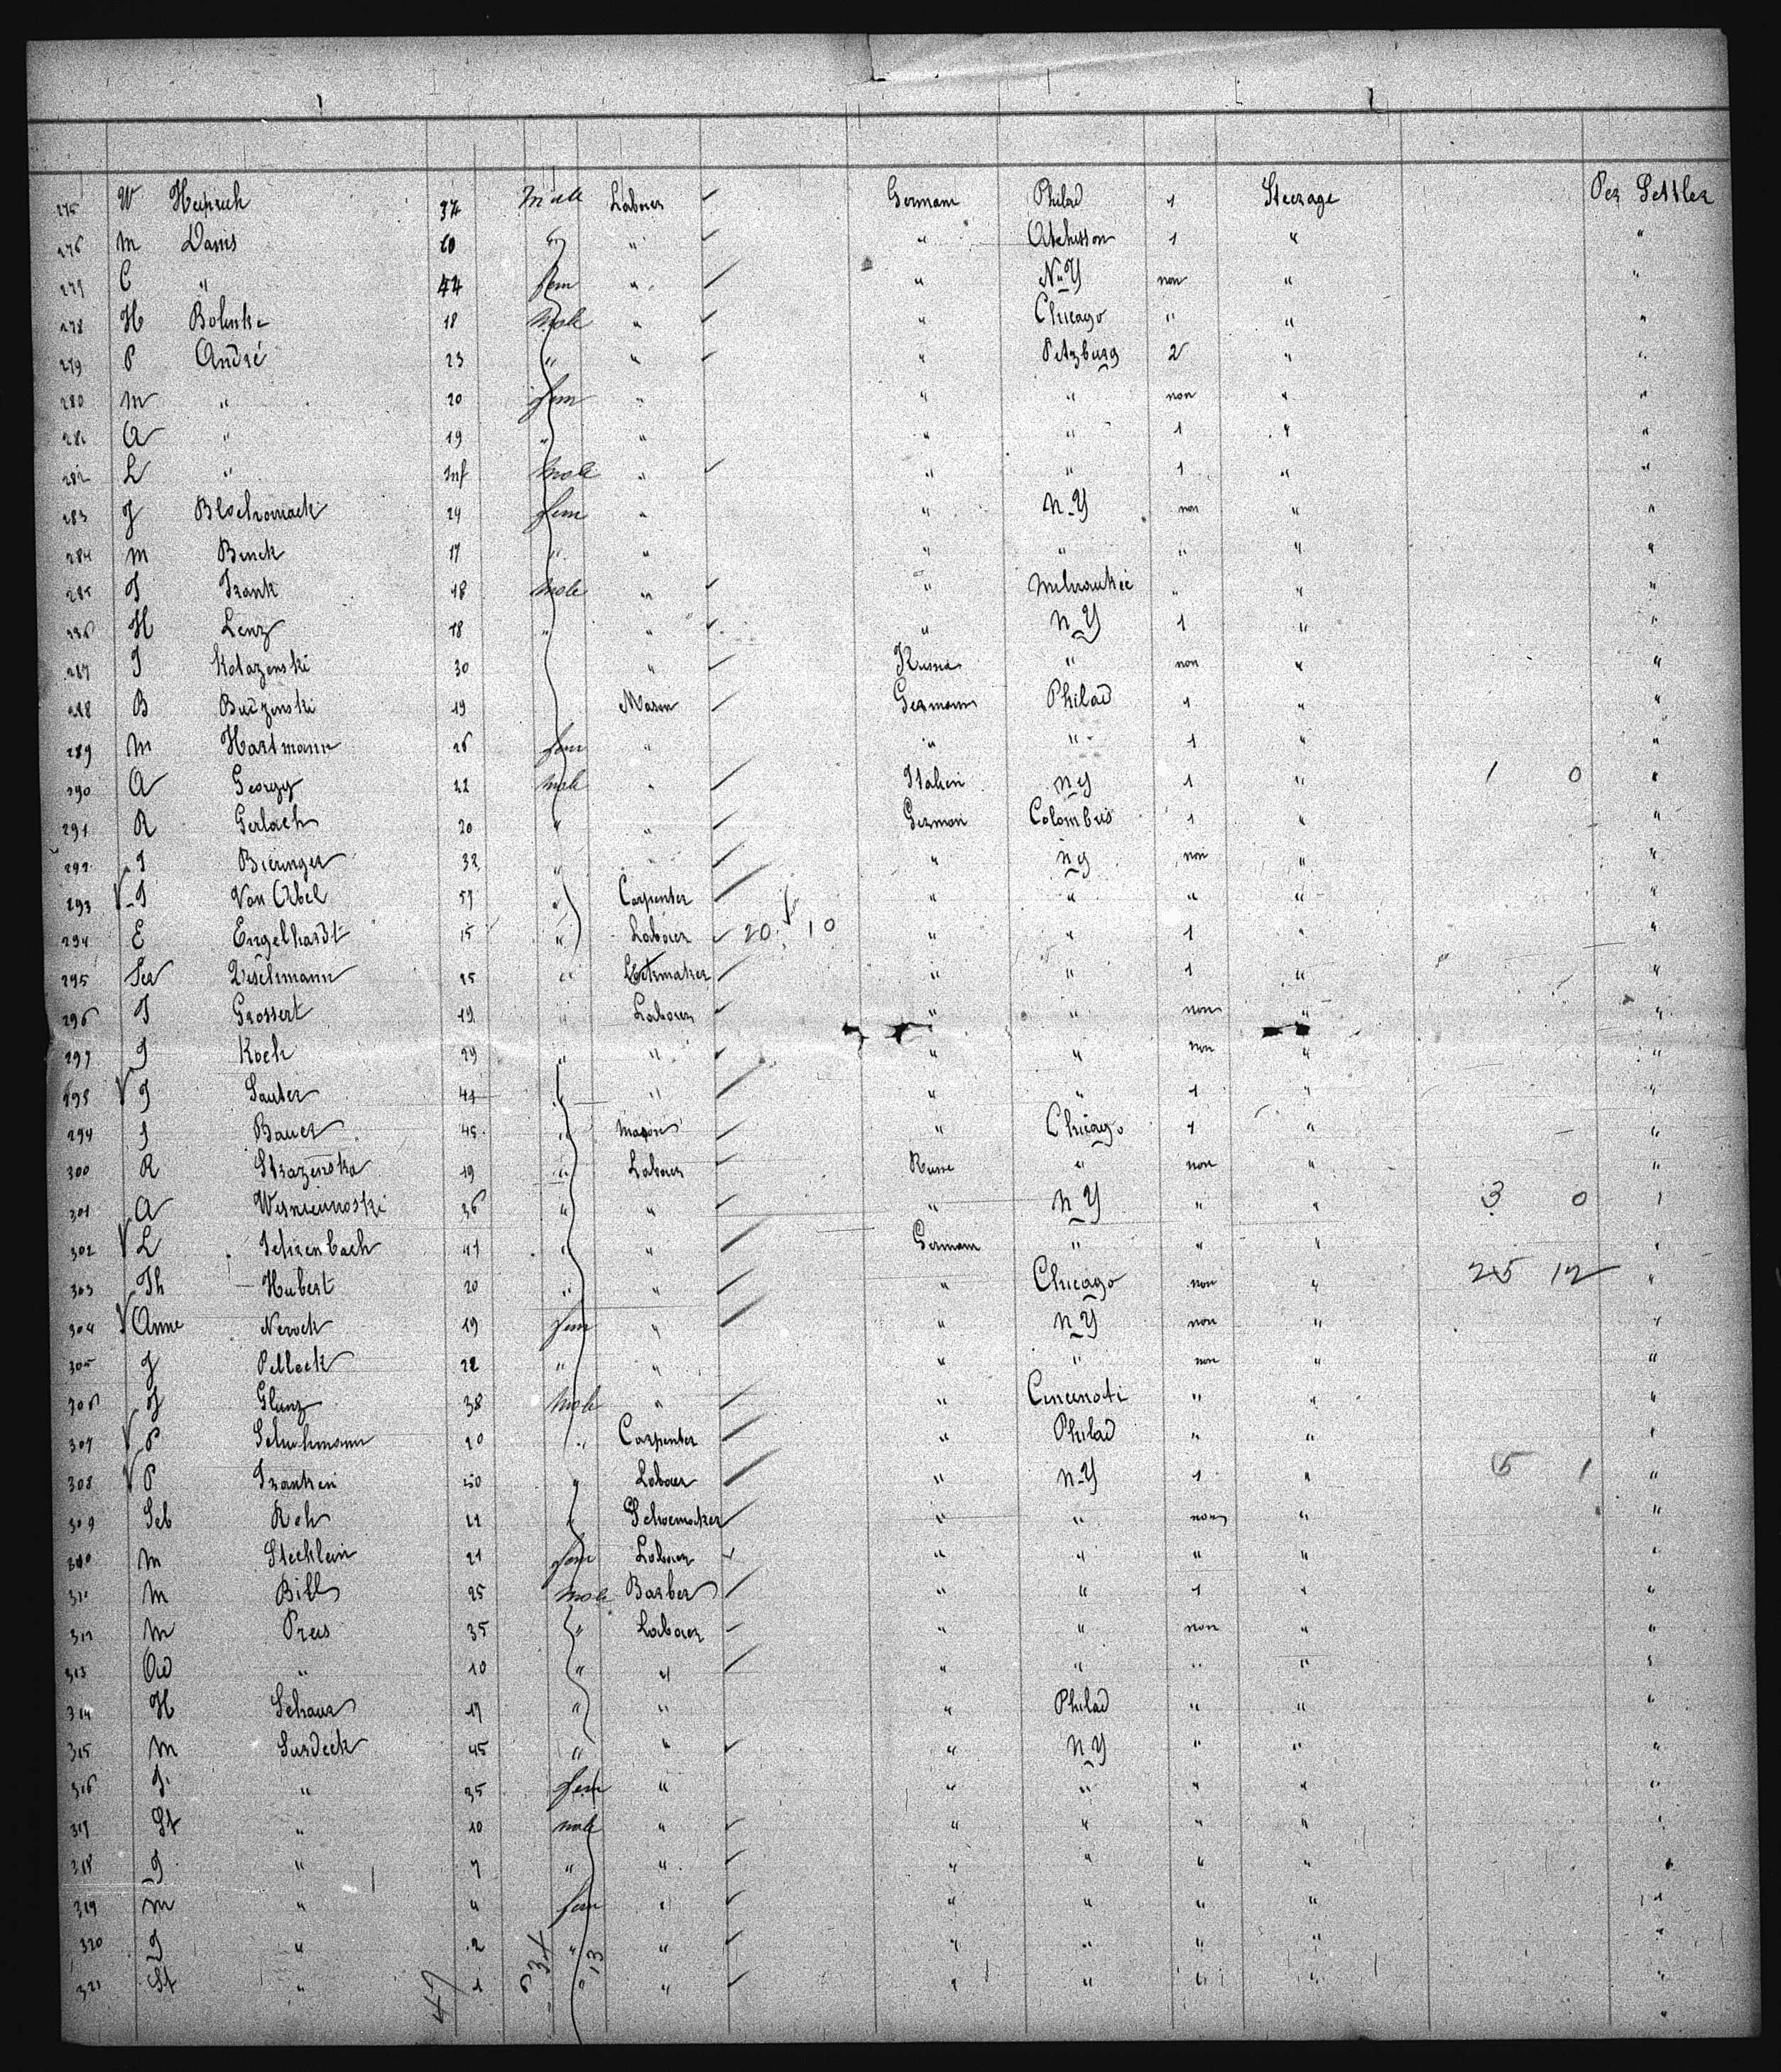 275 W Heinrich 37 Male Labourer German Philad 1 Steerage Per Settler
276 M Dams 60 " " " Atchisson 1 " "
277 C " 44 fem " " N-Y non " "
278 H 18 Male " " Chicago " " "
279 P André 23 " " " Petzburg 2 " "
280 M " 20 fem " " " non " "
281 A " 19 " " " " 1 " "
282 L " Inf Male " " " 1 " "
283 J 24 fem " " N-Y non " "
284 M Benck 17 " " " " " " "
285 F Frank 18 Male " " Milwaukie " " "
286 H Lenz 18 " " " N-Y 1 " "
287 J Kolazenski 30 " Russia " non " "
288 B Budzenski 19 Mason German Philad 1 " "
289 M Hartmann 26 fem " " " 1 " "
290 A Georgy 22 Male " Italien NY 1 " 1 0 "
291 R Gerlach 20 " " German Colombus 1 " "
292 J Bieringer 32 " " " NY non " "
293 J Von Abel 57 " Carpenter " " " " "
294 E Engelhardt 15 " Labourer 20 10 " " 1 " "
295 25 " " " 1 " "
296 F Grossert 19 " Labourer " " non " "
297 J Koch 29 " " " " non " "
298 J Sauter 41 " " " " 1 " "
299 J Bauer 45 " Mason " Chicago 1 " "
300 R 19 " Labourer Russe " non " "
301 A Wisniewoski 36 " " " N-Y " " 3 0 "
302 L 41 " " German " " " "
303 Th Hubert 20 " " " Chicago non " 25 12 "
304 Anne Nevock 19 fem " " N-Y non " "
305 J Polleck 22 " " " " non " "
306 J Glanz 38 Male " " Cincenati " " "
307 P Schuhmann 20 " Carpenter " Philad " " "
308 P Franken 50 " Labourer " N-Y 1 " 5 1 "
309 Seb Reh 22 " Schoemaker " " non " "
310 M Stecklein 21 fem Labourer " " " " "
311 M Bill 25 Male Barber " " 1 " "
312 M Preis 35 " Labourer " " non " "
313 Ad " 10 " " " " " " "
314 H Schaus 17 " " " Philad " " "
315 M Surdeck 45 " " " N-Y " " "
316 " 35 fem " " " " " "
317 St " 10 male " " " " " "
318 J " 7 " " " " " " "
319 M " 4 fem " " " " " "
320 J " 2 " " " " " " "
321 St " 1 " " " " " " "
47 34 13